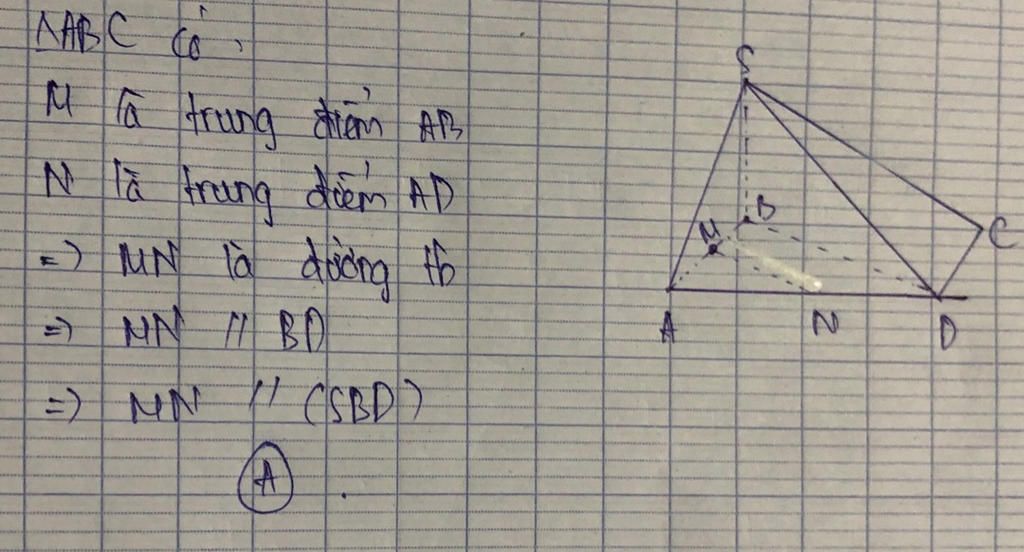 △ABC có
M là trung điểm AB
N là trung điểm AD
=) MN là đường tb
=) MN // BD
=) MN // (SBD)
A
S
B
M
C
A
N
D